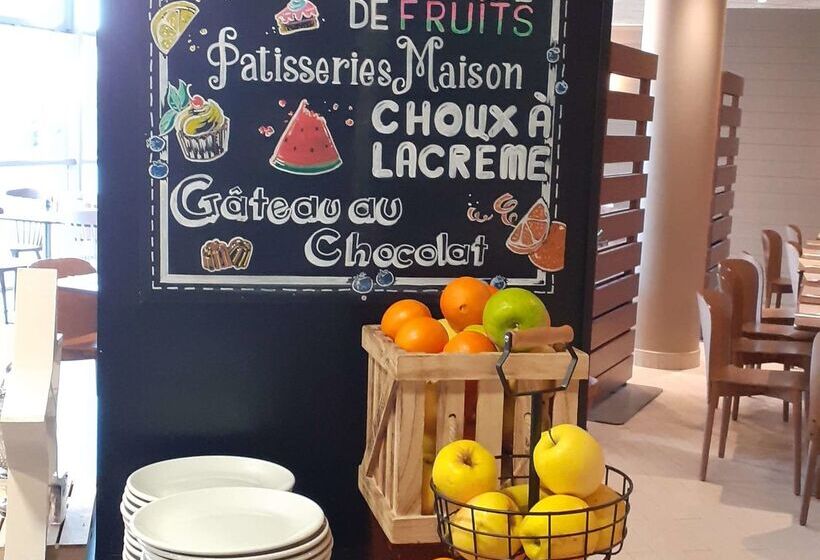 DE FRUITS
Patisseries Maison
CHOUX À
LA CREME
Gâteau au
Chocolat